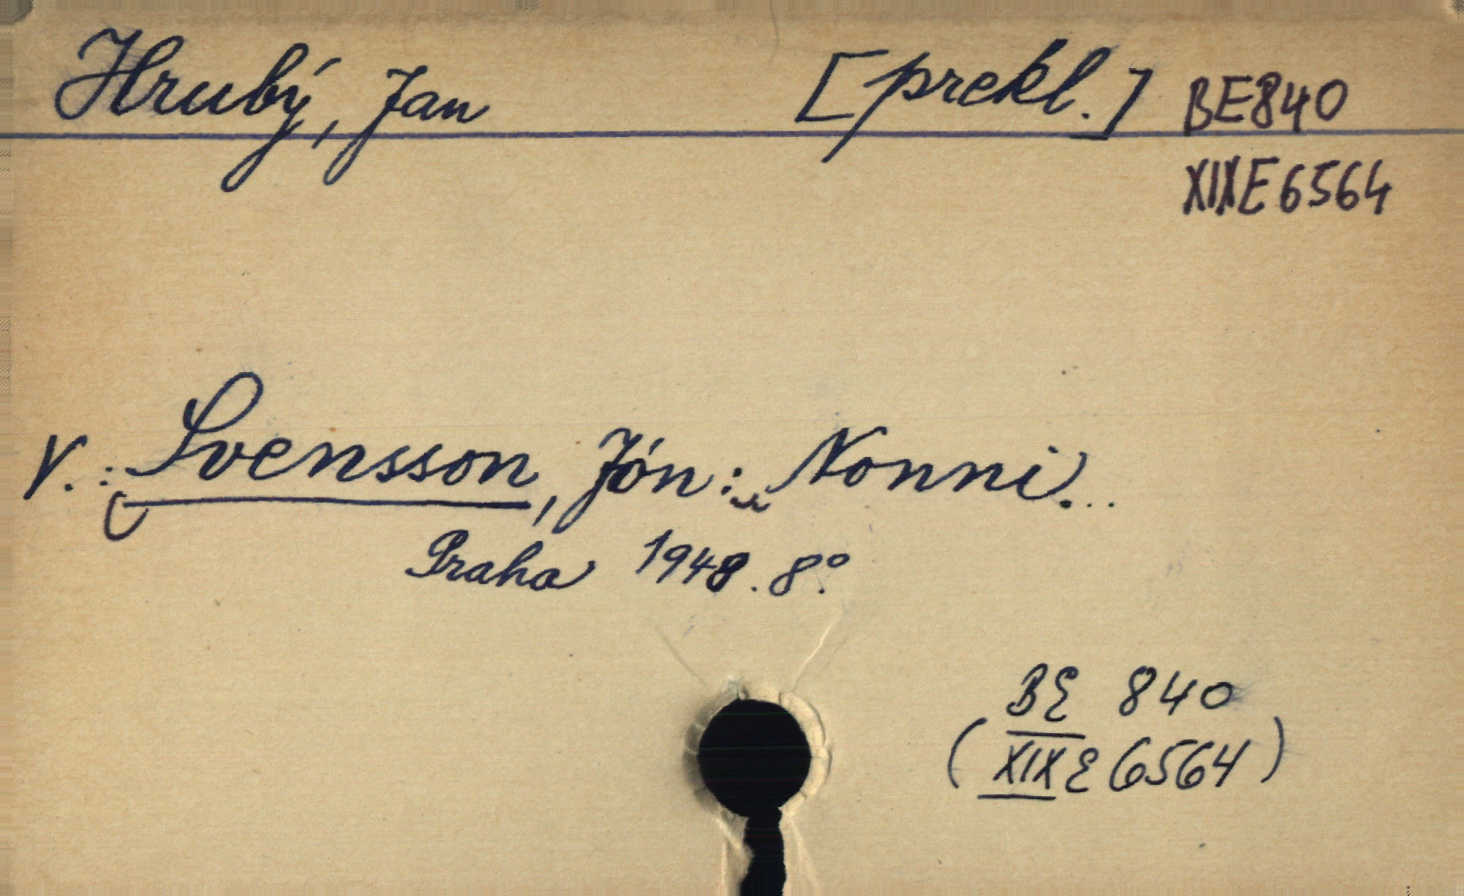 Hrubý, Jan [prekl.] BE840
XIXE6564
V.: Svensson, Jón: Nonni...
Praha 1948. 8°.
BE 840
(XIXE 6564)